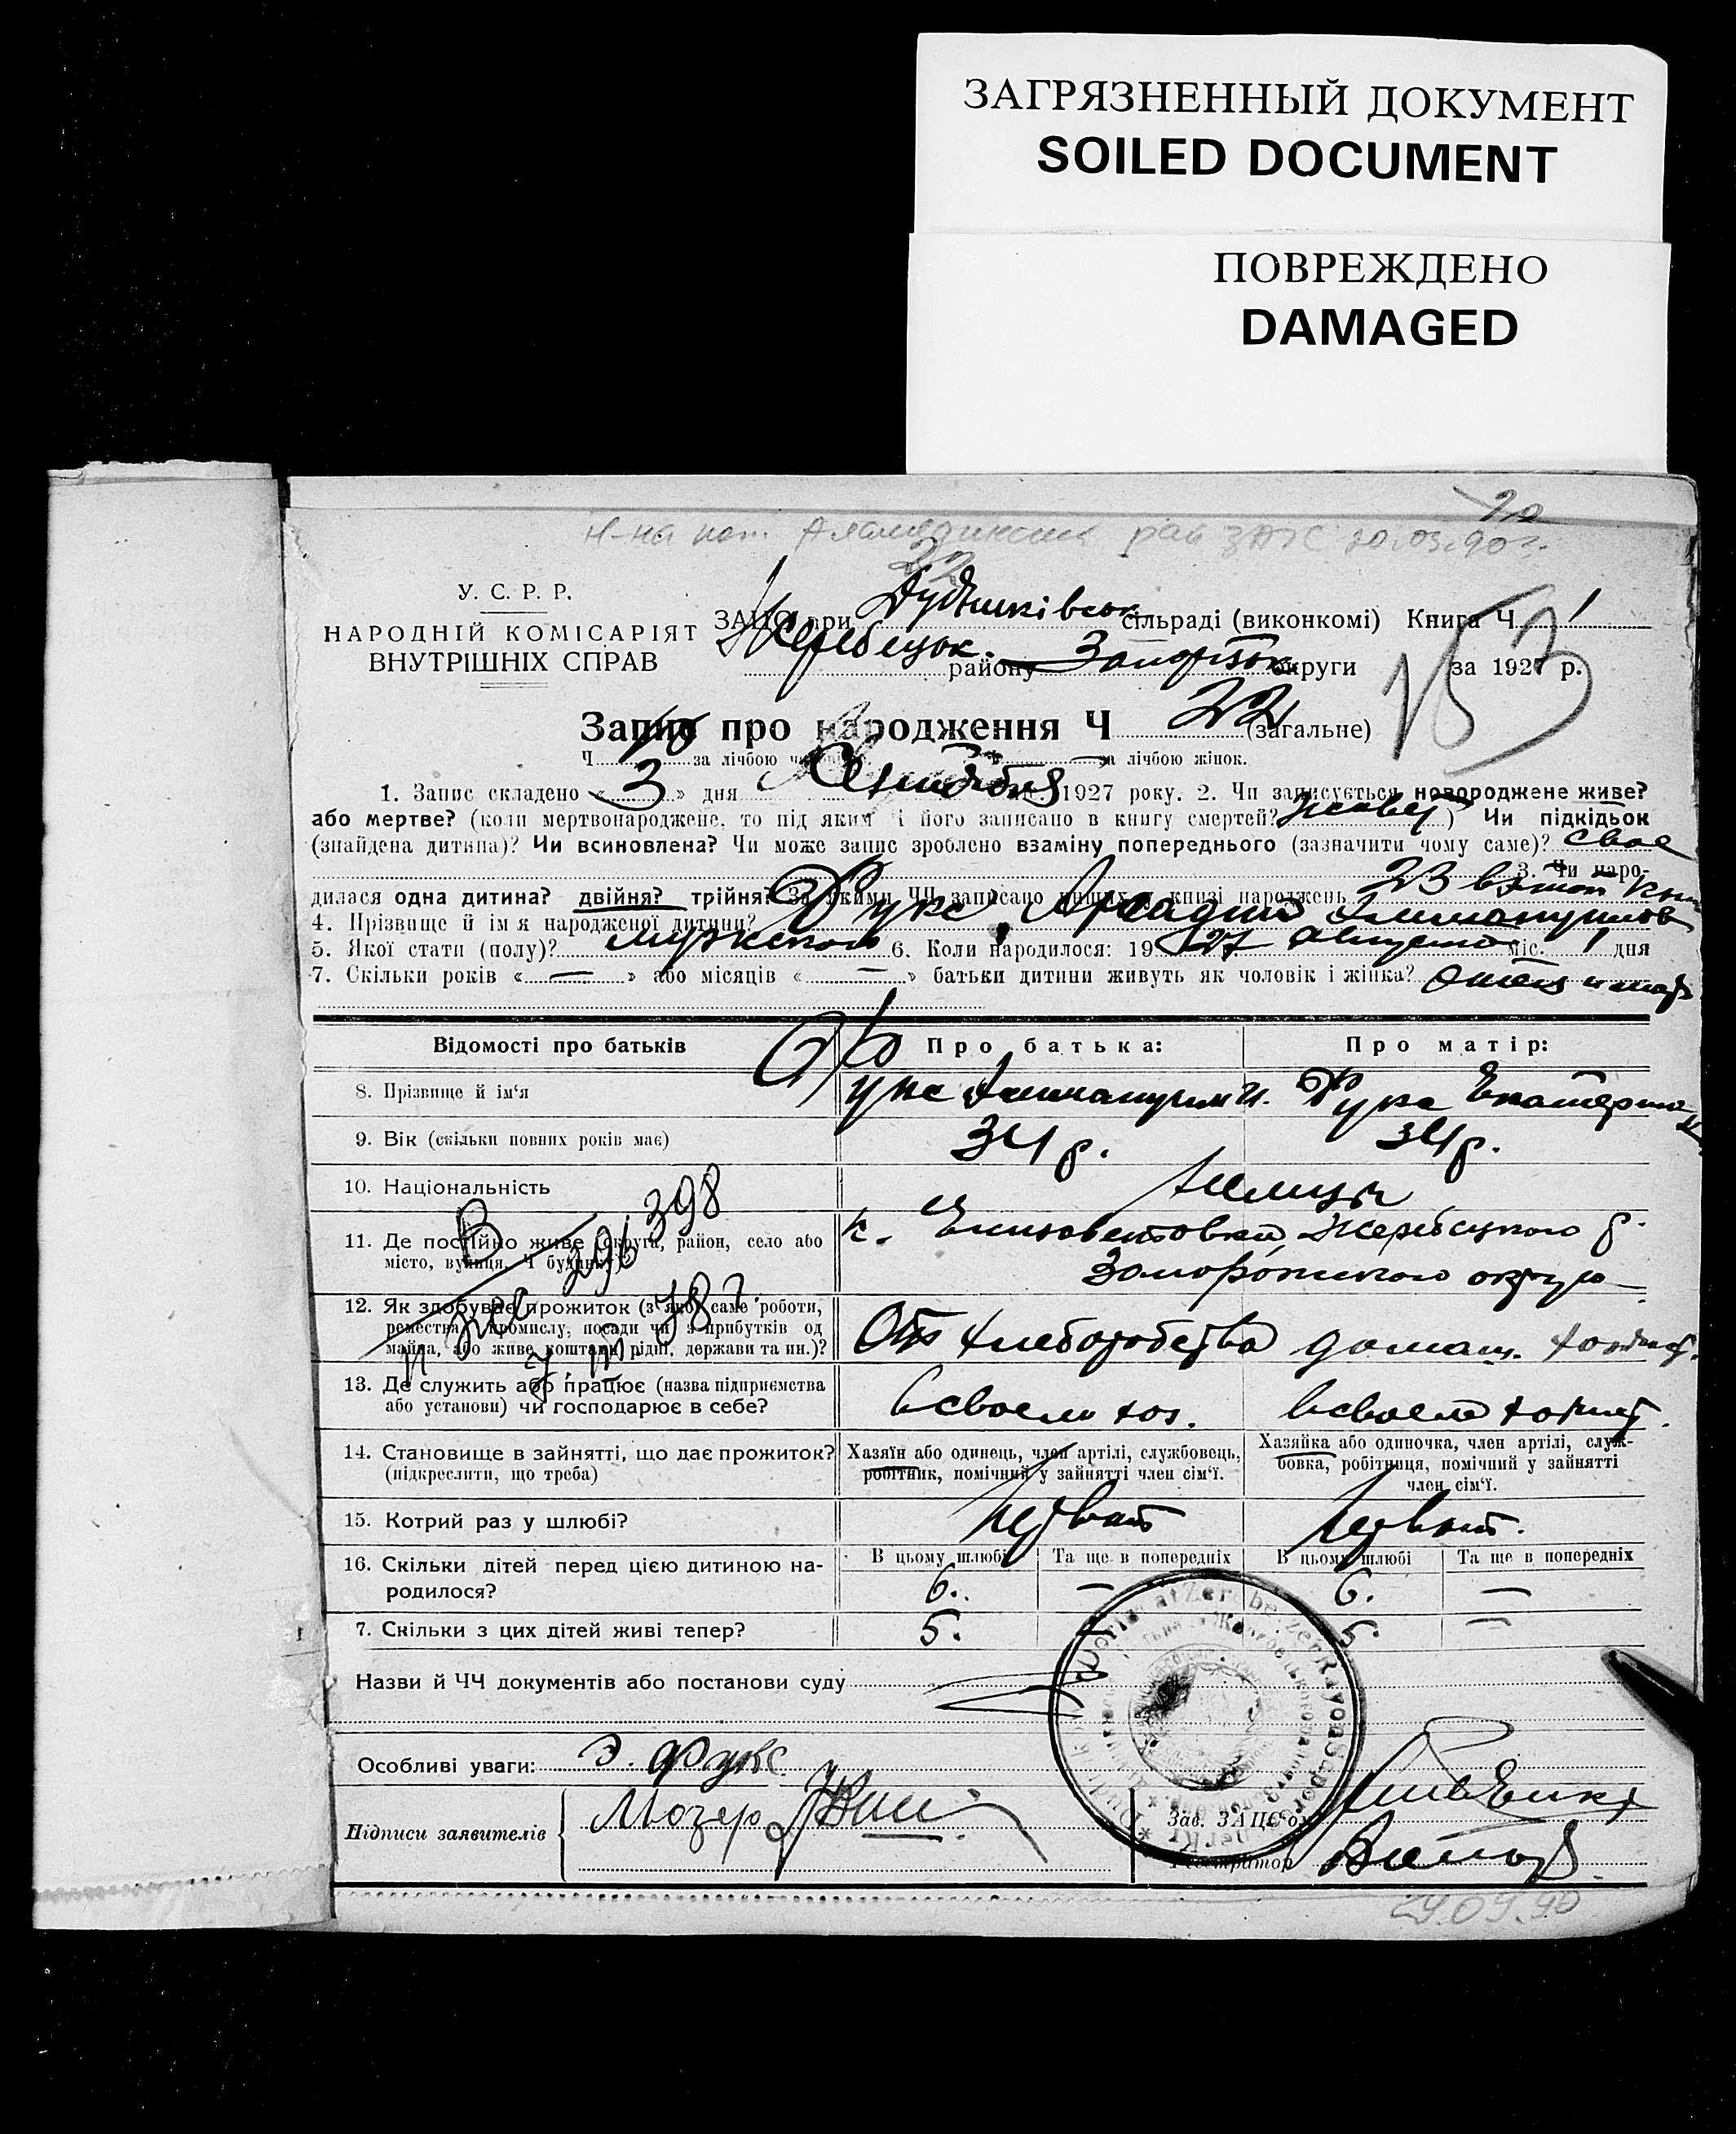 ЗАГРЯЗНЕННЫЙ ДОКУМЕНТ
SOILED DOCUMENT
ПОВРЕЖДЕНО
DAMAGED
рай ЗАГС 20.03.90 г.
У. С. Р. Р.
НАРОДНІЙ КОМІСАРІЯТ
ВНУТРІШНІХ СПРАВ
ЗАЦС при Дудниківськ сільраді (виконкомі) Книга Ч 1
Жеребецьк. району Запорізьк округи за 1927 р.
153
Запис про народження Ч 22 (загальне)
Ч 10 за лічбою за лічбою жінок.
1. Запис складено «3» дня Октября 1927 року. 2. Чи записується новороджене живе?
або мертве? (коли мертвонароджене, то під яким і його записано в книгу смертей? живе) Чи підкідьок
(знайдена дитина)? Чи всиновлена? Чи може запис зроблено взаміну попереднього (зазначити чому саме)? свое
3. Чи наро-
дилася одна дитина? двійня? трійня? За якими ЧЧ записано инших в книзі народжень 23
4. Прізвище й ім'я народженої дитини? Фукс, Аркадий Эммануилов
5. Якої стати (полу)? мужеского 6. Коли народилося: 1927 августа міс. 1 дня
7. Скільки років «—» або місяців «—» батьки дитини живуть як чоловік і жінка? отец и мать
Відомості про батьків Про батька: Про матір:
8. Прізвище й ім'я Фукс Еммануил И. Фукс Екатерина
9. Вік (скільки повних років має) 34 р. 34 р.
10. Національність немцы
398
296
11. Де постійно живе (округа, район, село або к. Елизаветовка, Жеребецкого р.
місто, вулиця, Ч будинку)? Запорожского округа
12. Як здобуває прожиток (з якої саме роботи, От хлеборобства домаш. хозяйст.
ремества, промислу, посади чи з прибутків од
майна, або живе коштами рідні, держави та ин.)?
13. Де служить або працює (назва підприємства в своем хоз. в своем хозяйст.
або установи) чи господарює в себе?
14. Становище в зайнятті, що дає прожиток? Хазяїн або одинець, член артілі, службовець, Хазяйка або одиночка, член артілі, служ-
(підкреслити, що треба) робітник, помічний у зайнятті член сім'ї. бовка, робітниця, помічний у зайнятті
член сім'ї.
15. Котрий раз у шлюбі? первый первый.
16. Скільки дітей перед цією дитиною на- В цьому шлюбі Та ще в попередніх В цьому шлюбі Та ще в попередніх
родилося? 6. — 6. —
7. Скільки з цих дітей живі тепер? 5. — 5. —
Назви й ЧЧ документів або постанови суду
Особливі уваги: Э. Фукс
Підписи заявителів Мозер Зав. ЗАЦС'ом
Реєстратор
29.09.90